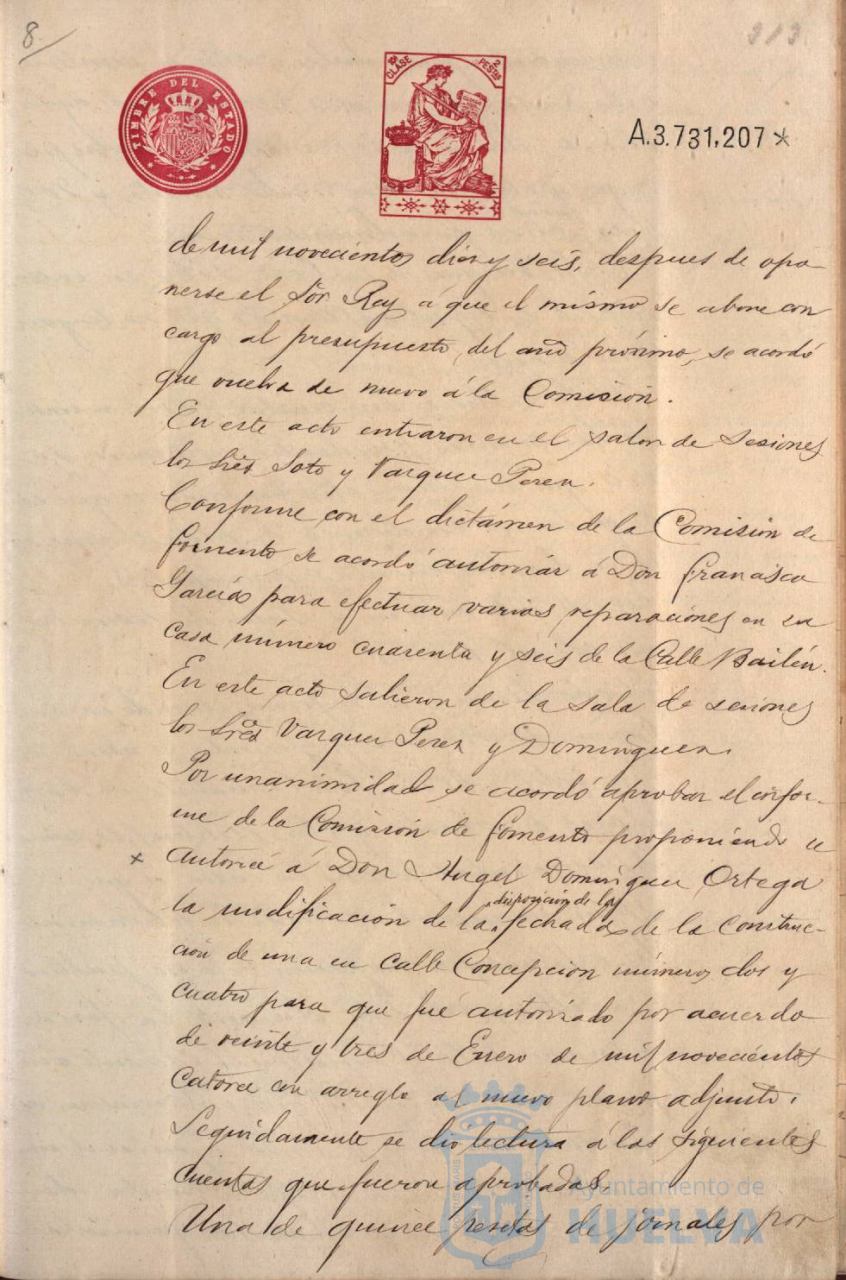 8
313
TIMBRE DEL ESTADO
10ª CLASE 2 PESTAS
A.3.731,207*
de mil novecientos diez y seis, despues de opo-
nerse el Sor Rey á que el mismo se abone con
cargo al presupuesto del año próximo, se acordó
que vuelva de nuevo á la Comisión.
En este acto entraron en el salon de sesiones
los Sres Soto y Vazquez Perez.
Conforme con el dictámen de la Comisión de
fomento se acordó autorizar á Don Francisco
García para efectuar varias reparaciones en su
casa número cuarenta y seis de la Calle Bailén.
En este acto salieron de la sala de sesiones
los Sres Vazquez Perez y Dominguez.
Por unanimidad se acordó aprobar el infor-
me de la Comisión de fomento proponiendo se
x autorice á Don Angel Dominguez Ortega
disposición de la
la modificación de la fachada de la construc-
ción de una en calle Concepcion números dos y
cuatro para que fué autorizado por acuerdo
de veinte y tres de Enero de mil novecientos
catorce con arreglo al nuevo plano adjunto.
Seguidamente se dio lectura á las siguientes
cuentas que fueron aprobadas.
Una de quince pesetas de jornales por
Ayuntamiento de
HUELVA